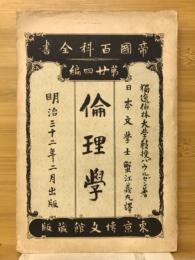 帝國百科全書
第廿四編
獨逸倫林大學敎授パウルゼン著
日本文學士蟹江義丸譯
倫理學
明治三十二年二月出版
東京博文館蔵版